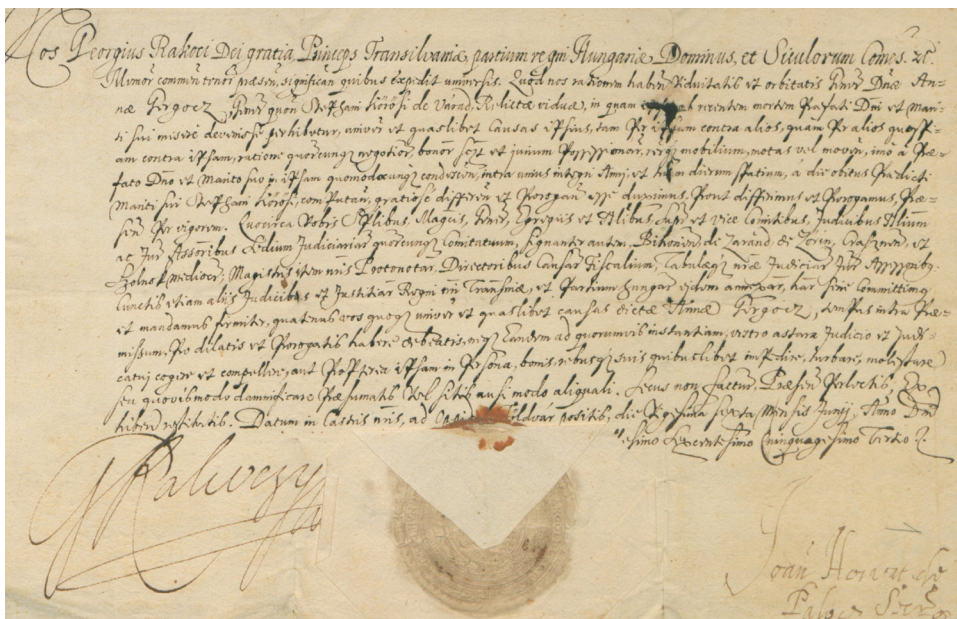 Nos Georgius Rakoci Dei gratia Princeps Transilvaniæ partium regni Hungariæ Dominus, et Siculorum Comes. &c.
Memor commen tenor præsen significan quibus expedit universis. Quod nos rationem haben Viduitatis et orbitatis Gener Dnæ An-
næ Gergocz, Gener quon Stephani Körösi de Varad, Relictæ viduæ, in quam mortem Præfati Dni et Mari-
ti sui misere devenisse perhibetur, univer et quaslibet causas ipsius, tam Per ipsam contra alios, quam Per alios quosp-
iam contra ipsam, ratione quorcunq negotior, bonor et jurium Possessionar, rerq mobilium, motas vel moven, imo à Præ-
fato Dno et Marito suo in ipsam quomodocunq condescen, intra unius integri Anni, et dierum spatium, à die obitus Prædicti
Mariti sui Stephani Körösi, computan, gratiose differen et Prorogan esse duximus. Prout differimus et Prorogamus, Præ-
sen Per vigorem. Quocirca Vobis Splibus, Magcis, Gener, Egregiis et Nlibus, Supr et Vice Comitibus, Judicibus Nlium
ac Jur Assoribus Sedium Judiciariar quorcunq Comitatuum, signanter autem, Bihorien de Zarand, de Crasznen, et
Szolnok mediocr, Magistris item nris Protonotar, Directoribus Causar Fiscalium, Tabulæq nræ Judiciar Jur Assessorib,
Cunctis etiam aliis Judicibus et Justitiar Regni Transniæ, et Partium Hungar eidem annexar, har serie Committimq
et mandamus firmiter, quatenus vos quoq univer et quaslibet causas dictæ Annæ Gergocz, tempus intra Præ-
missum, Pro dilatis et Prorogatis habere debeatis, neq Eandem ad quorumvis instantiam, vestro astare Judicio et Judi-
catui cogere et compellere, aut Propterea ipsam in Persona, bonis, rebusq suis quibuslibet impedire, turbare, molestare
seu quovis modo damnificare Præsumatis Vel sitis ausi modo aliquali. Secus non factur. Præsen Perlectis, Ex-
hiben restitutis. Datum in Castris nris, ad földvár positis, die Vigesima sexta Mensis Junij, Anno Dni
esimo Sexcentesimo Quinquagesimo Tertio
G Rakoczy
Joan Horvat de
Paloc Secr